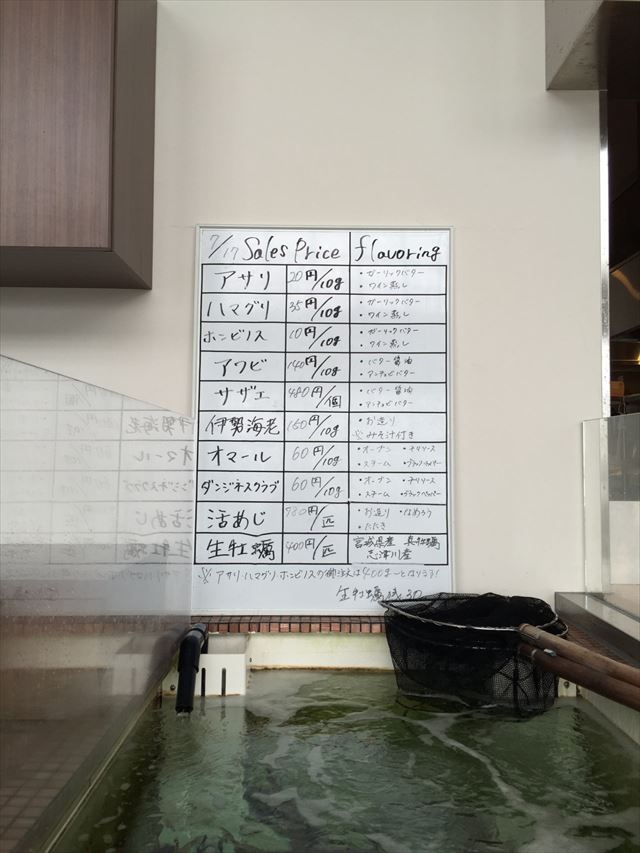 7/17 Sales Price flavoring
アサリ 20円/10g ・ガーリックバター
・ワイン蒸し
ハマグリ 35円/10g ・ガーリックバター
・ワイン蒸し
ホンビノス 10円/10g ・ガーリックバター
・ワイン蒸し
アワビ 140円/10g ・バター醤油
・アンチョビバター
サザエ 480円/個 ・バター醤油
・アンチョビバター
伊勢海老 150円/10g ・お造り
※みそ汁付き
オマール 60円/10g ・オーブン ・チリソース
・スチーム ・ブラックペッパー
ダンジネスクラブ 60円/10g ・オーブン ・チリソース
・スチーム ・ブラックペッパー
活あじ 980円/匹 ・お造り ・なめろう
・たたき
生牡蠣 400円/匹 宮城県産 真牡蠣
志津川産
※アサリ・ハマグリ・ホンビノスの御注文は400g〜となります!
生牡蠣 残30